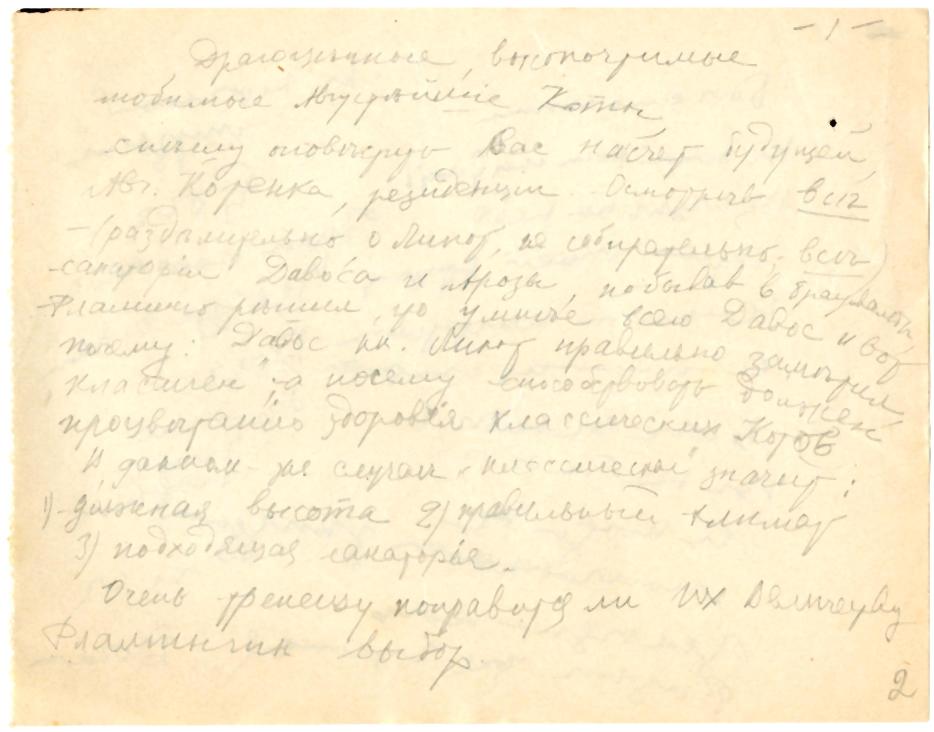 - 1 -
Драгоцѣнные, высокочтимые
любимые Августѣйшіе Коты
спѣшу оповѣстить Вас насчет будущей,
Авг. Котенка, резиденции. Осмотрѣв всѣ
-(раздѣлительно о Липот, не собирательно, всѣ)
-санаторіи Давоса и Арозы, побывав в
Фламинго рѣшил, что умнѣе всего Давос и вот
почему: Давос кк. Липот правильно замѣтил
"классичен", а посему способствовать должен
процвѣтанію здоровья классических Котов
В данном же случаѣ "классическій" значит:
1) должная высота 2) правильный климат
3) подходящая санаторія.
Очень трепещу понравится ли Их Величеству
Фламингин выбор.
2